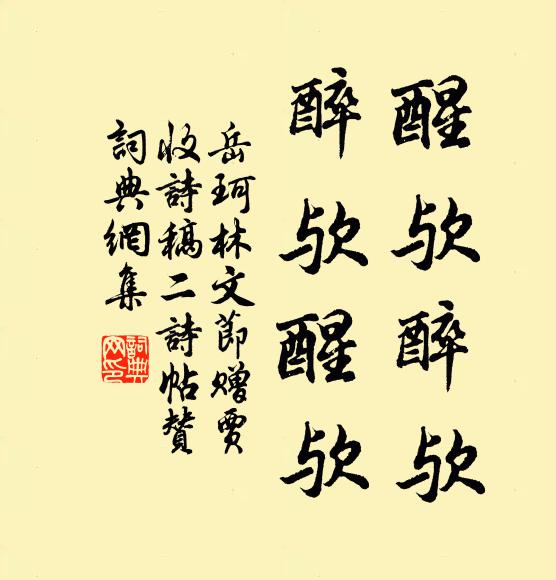 醒欤醉欤
醉欤醒欤
岳珂林文節贈賈
收詩稿二詩帖贊
詞典網集
詞典
网印